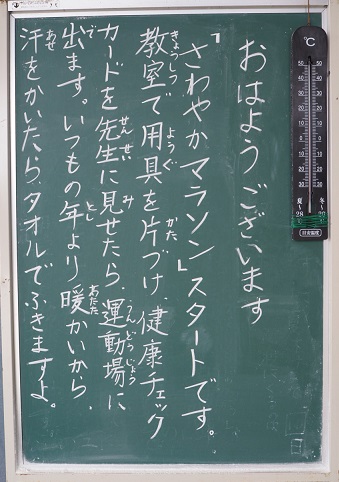 おはようございます
「さわやかマラソン」スタートです。
教室で用具を片づけ、健康チェック
カードを先生に見せたら、運動場に
出ます。いつもの年より暖かいから、
汗をかいたら、タオルでふきますよ。
きょうしつ
ようぐ
かた
せんせい
み
うんどうじょう
で
とし
あたた
あせ
℃
50 50
40 40
30 30
20 20
10 10
0 0
10 10
20 20
30 30
夏 冬
28 20